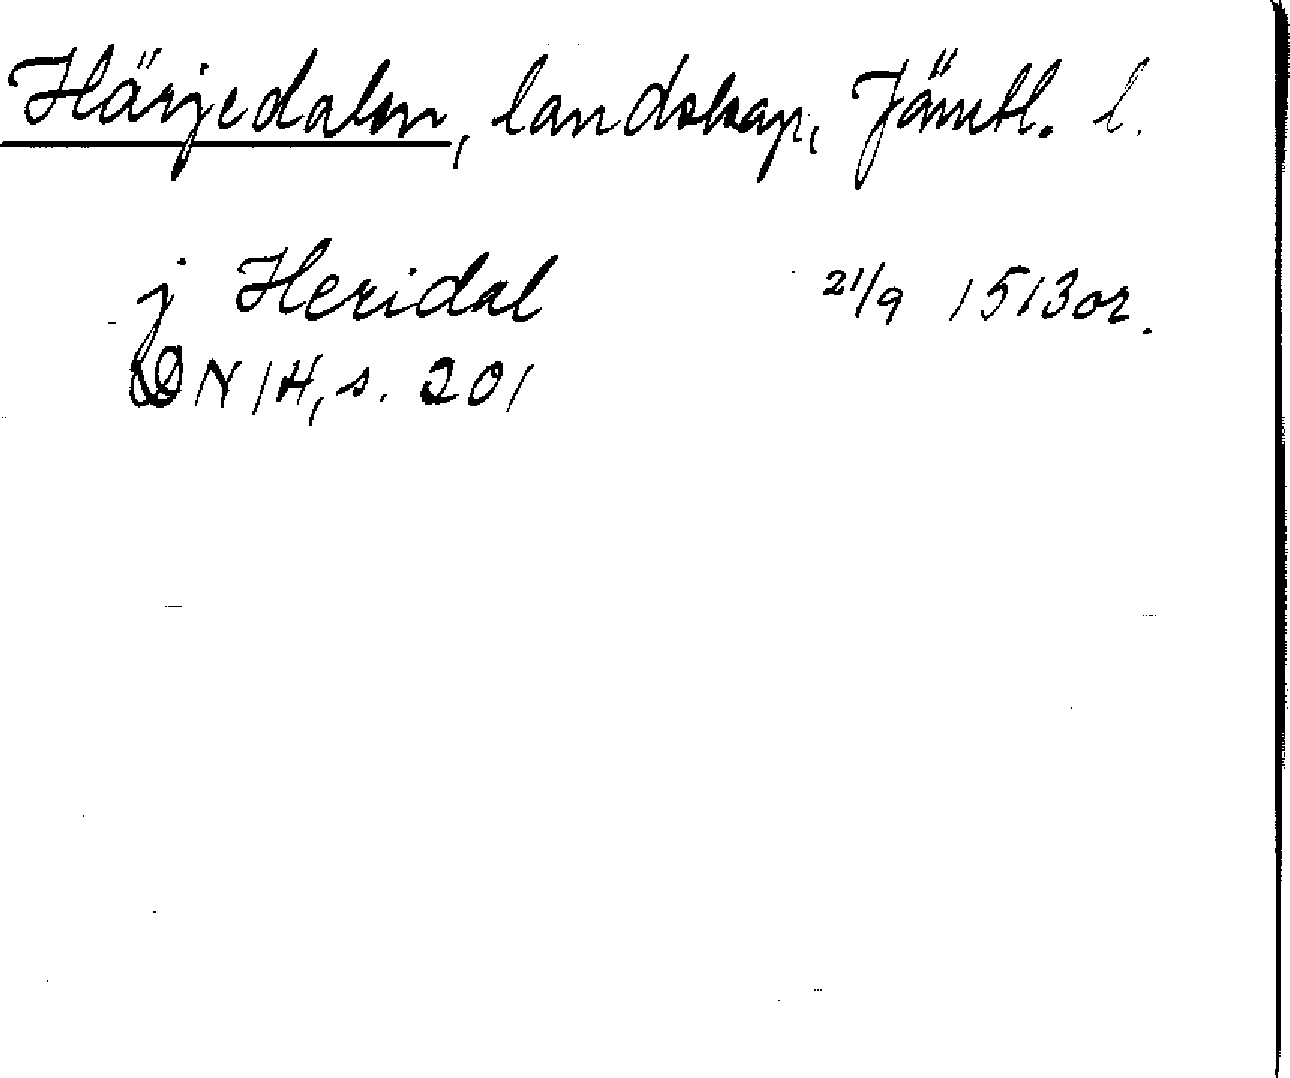 Härjedalen, landskap, Jämtl. l.
j Heridal 21/9 1513 or.
DN 14, s. 201